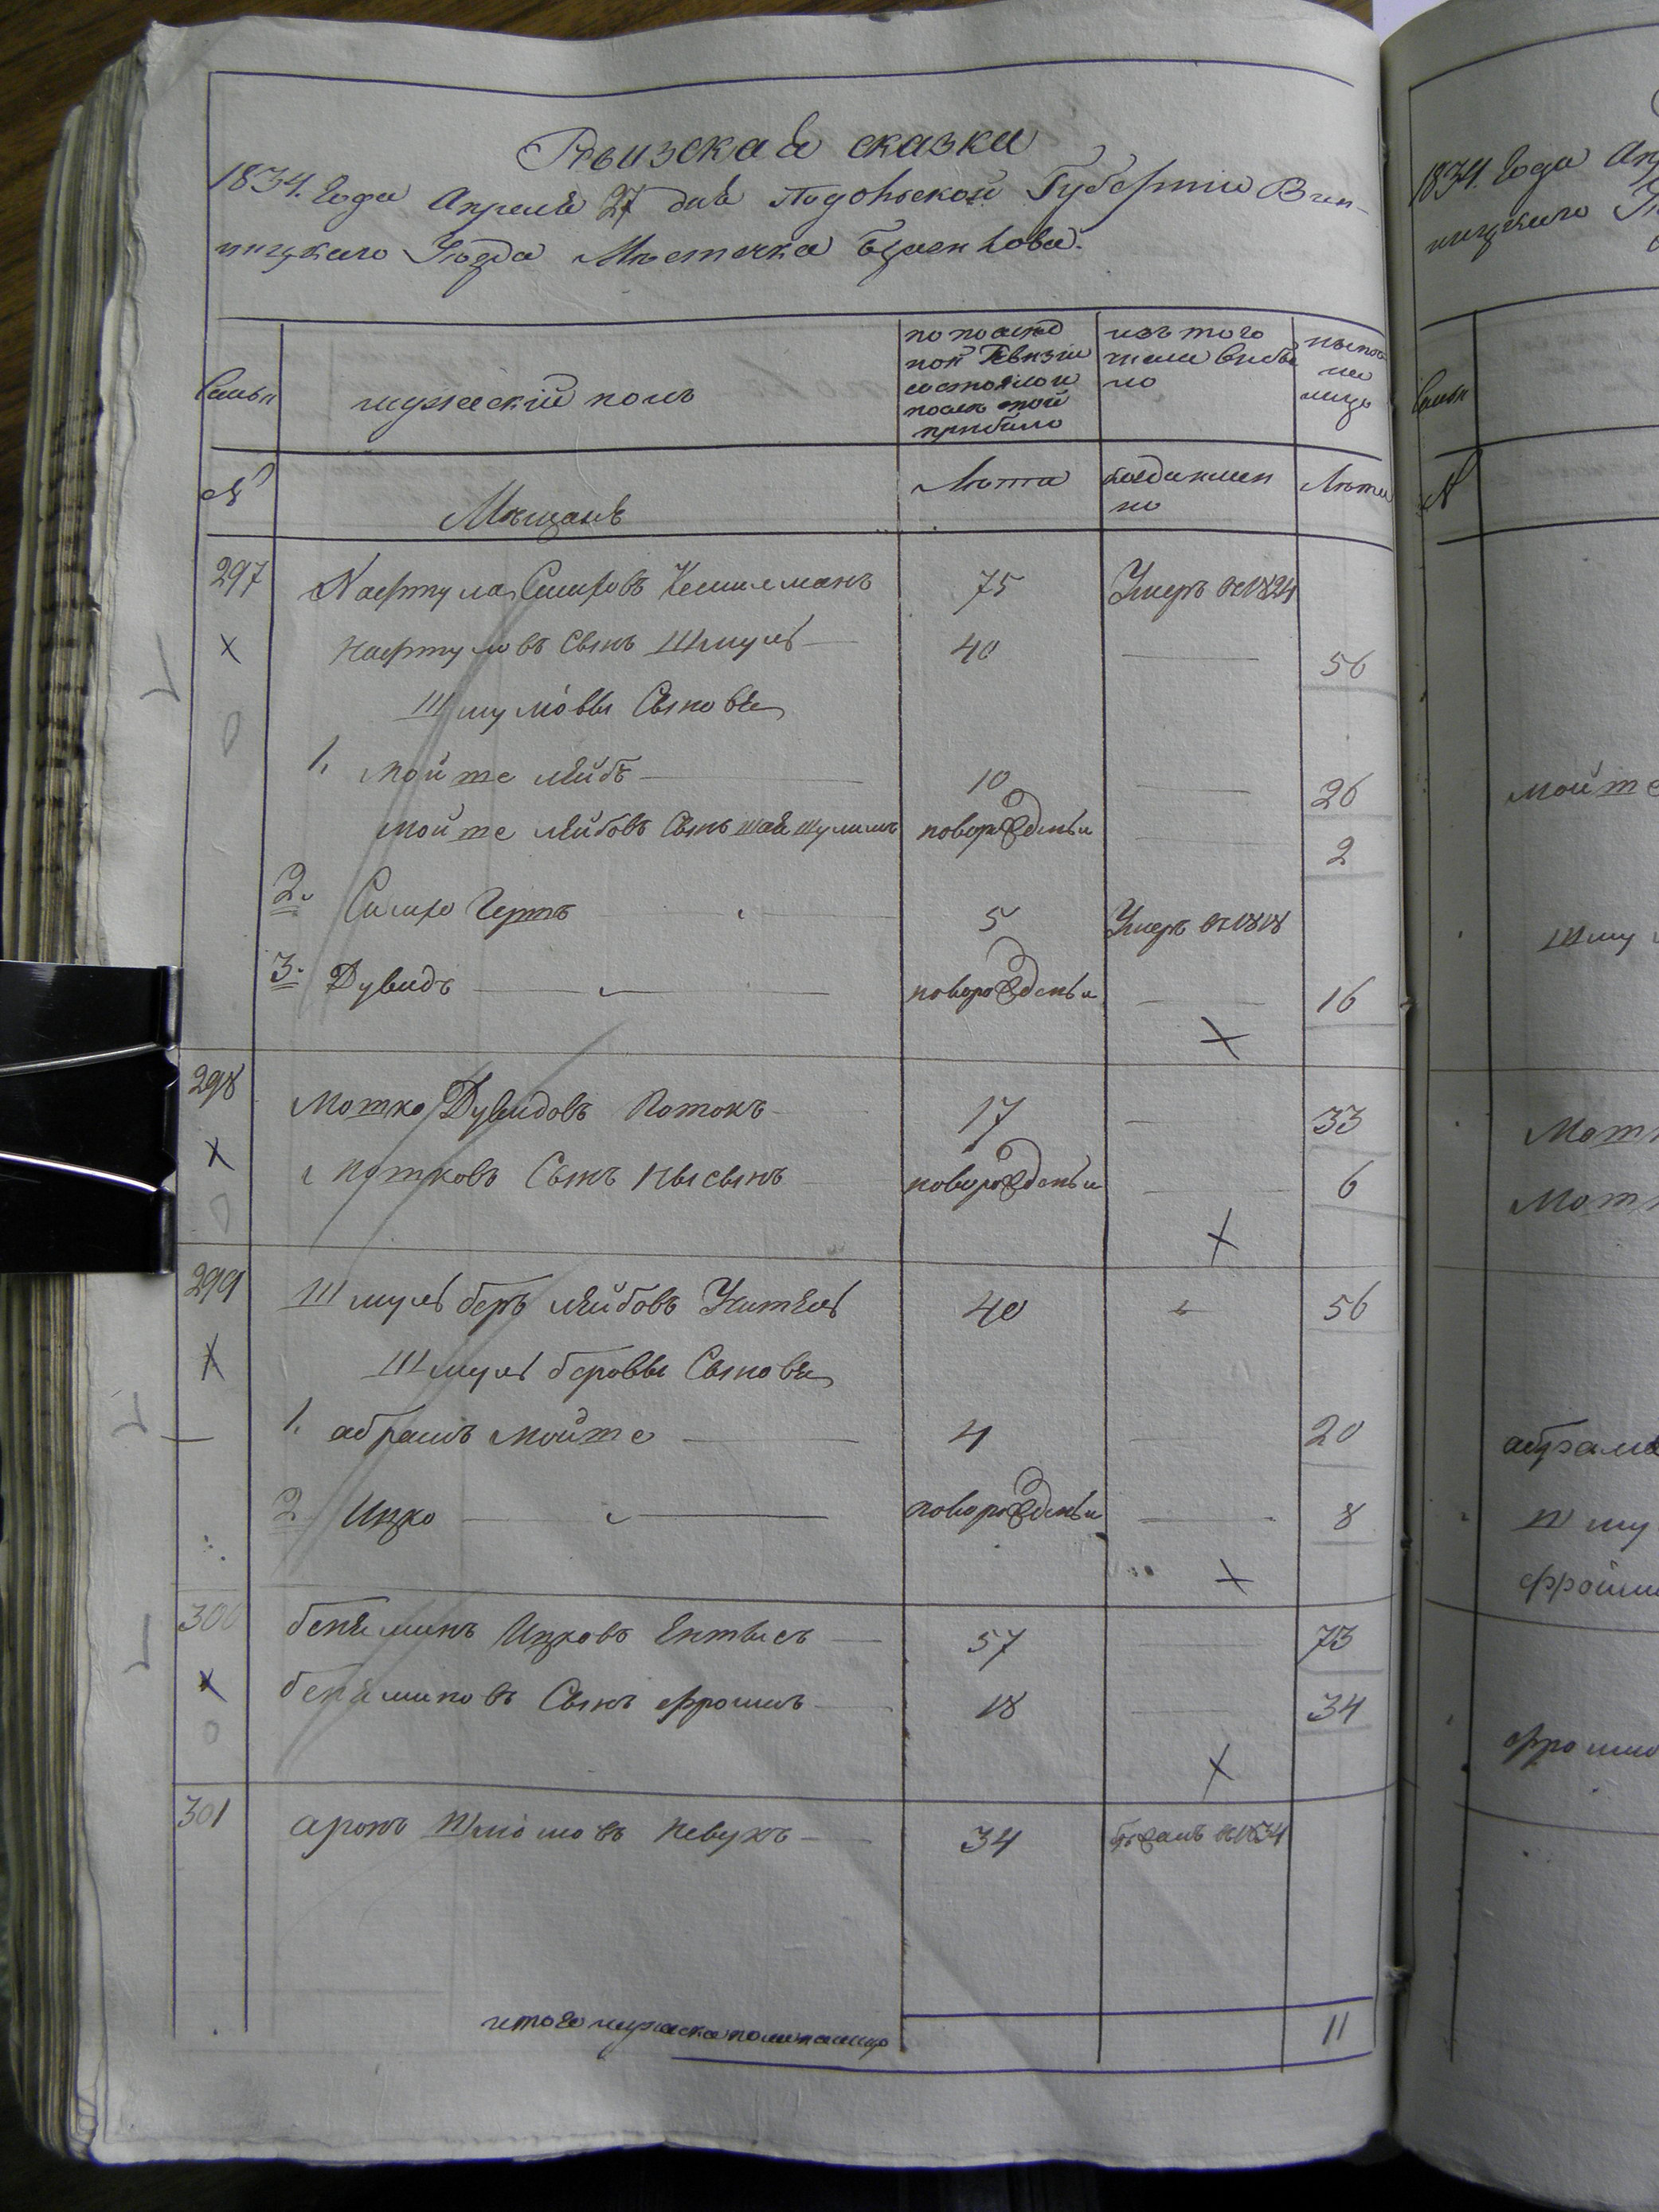 Ревизская сказка
1834. Года Апреля 27 дня Подольской Губернии Вин-
ницкаго Уезда Местечка
Семьи
мужеский полъ
по послед
ной Ревизии
состояло и
после того
прибыло
изъ того
числа выбы
ло
ныне
на
лицо
№
Мещане
Лета
когда имен
но
Лета
297 Нафтула Сmиховъ 75 Умеръ въ 1824
Нафтуловъ Сынъ Шмуль 40 56
Шмулёвы Сыновья
1. Мойше Лейбъ 10 26
Мойше Лейбовъ Сынъ новорожденны 2
2. Гершъ 5 Умеръ въ 1818
3. Дувидъ новорожденны 16
298 Мошко Дувидовъ Потокъ 17 33
Мошковъ Сынъ новорожденны 6
299 Шмуль Беръ Лейбовъ Учитель 40 56
Шмуль Беровы Сыновья
1. Абрамъ Мойше 4 20
2 Ицко новорожденны 8
300 Беняминъ Ицковъ 57 73
Беняминовъ Сынъ Фроимъ 18 34
301 Аронъ Шлёмовъ 34 Бежалъ въ 1834
итого мужеска пола налицо 11
1834. Года Ап
ницкаго
Семьи
№
Мойше
Шму
Мош
Мош
Абрам
Шму
Фройм
Фроим